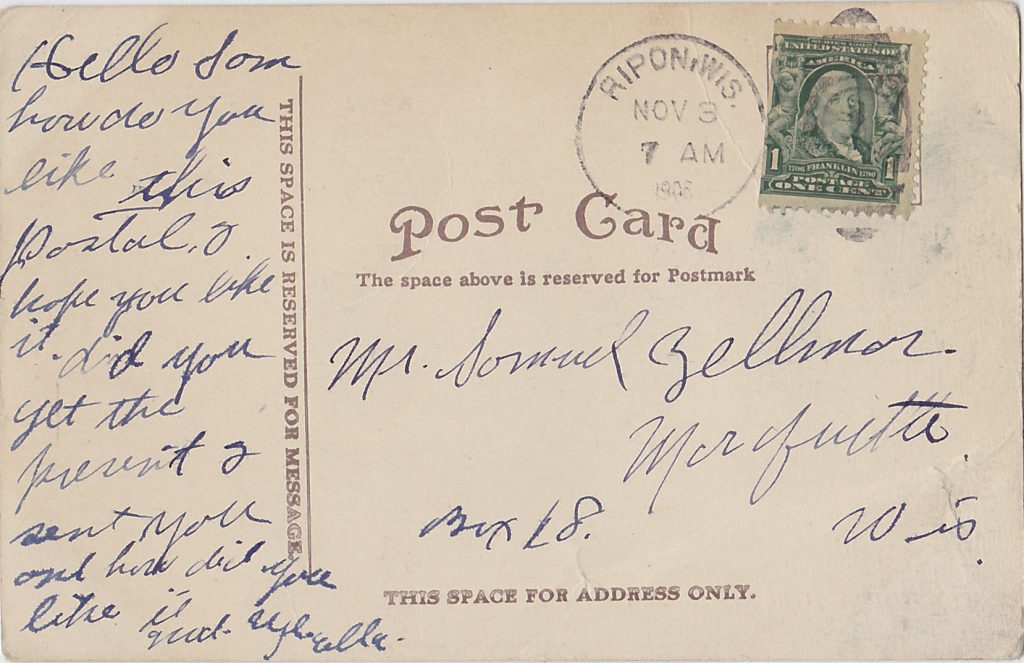 Hello Sam
how do you
like this
Postal, I
hope you like
it. did you
get the
present I
sent you
and how did you
like it
good-bye. Ella.
THIS SPACE IS RESERVED FOR MESSAGE
RIPON, WIS.
NOV 3
7 AM
UNITED STATES OF
AMERICA
1 1
1706 FRANKLIN 1790
POSTAGE
ONE CENT
Post Card
The space above is reserved for Postmark
Mr. Samuel Zellmar.
Marquette.
Box 18. Wis.
THIS SPACE FOR ADDRESS ONLY.